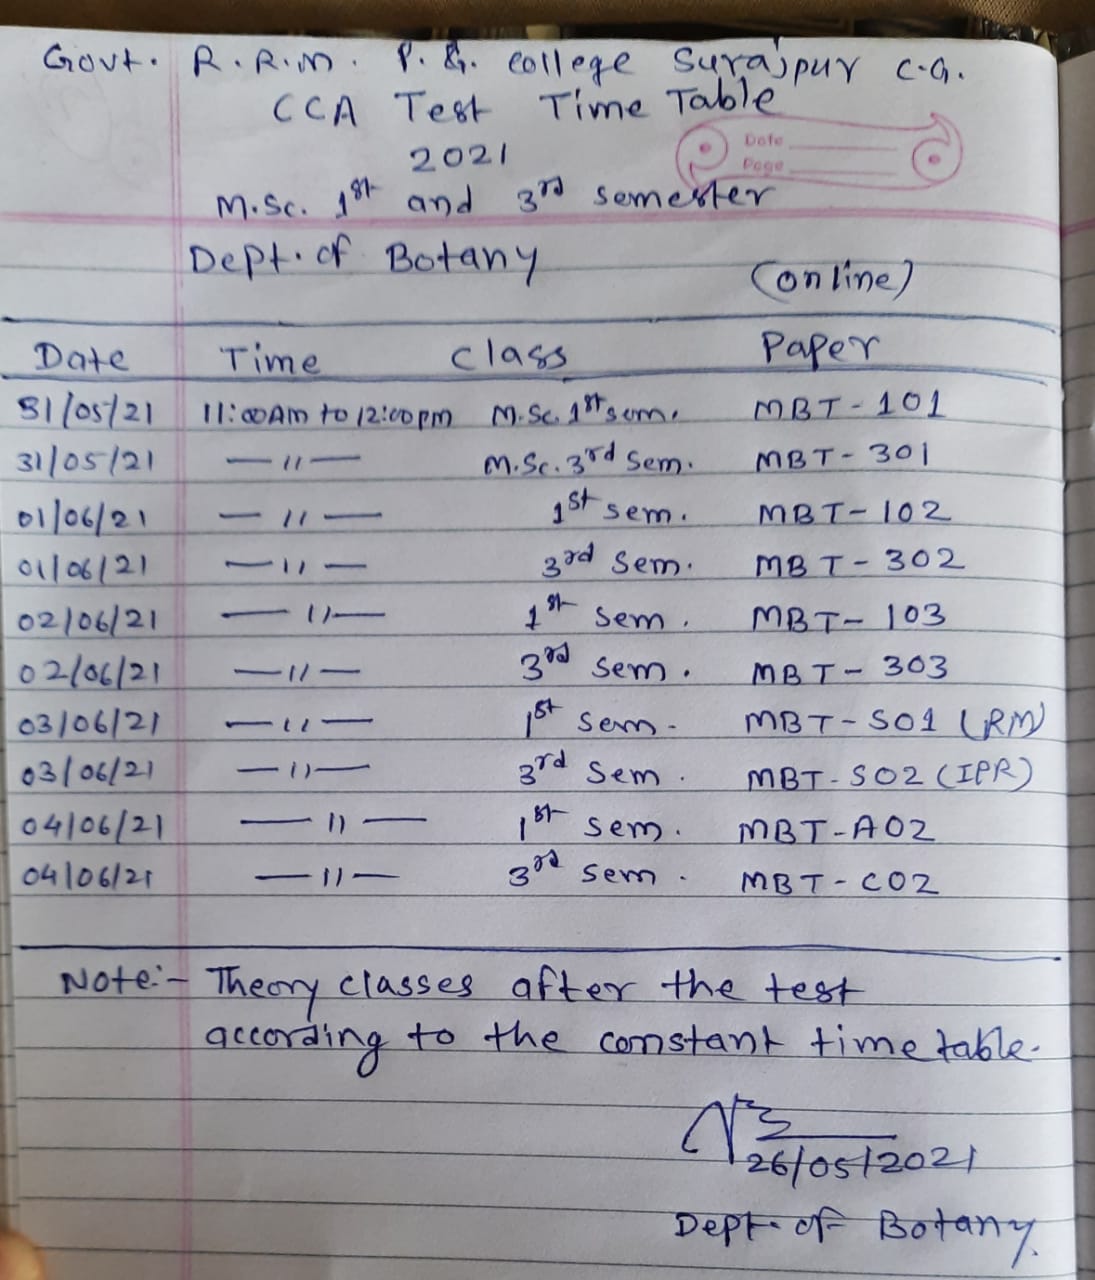 Govt. R.R.M. P.G. College Surajpur C.G.
CCA Test Time Table
2021
Date
Page
M.Sc. 1st and 3rd semester
Dept. of Botany
(online)
Date Time Class Paper
31/05/21 11:00AM to 12:00pm M.Sc. 1st sem. MBT-101
31/05/21 —〃— M.Sc. 3rd Sem. MBT-301
01/06/21 —〃— 1st sem. MBT-102
01/06/21 —〃— 3rd Sem. MBT-302
02/06/21 —〃— 1st sem. MBT-103
02/06/21 —〃— 3rd sem. MBT-303
03/06/21 —〃— 1st sem- MBT-S01 (RM)
03/06/21 —〃— 3rd Sem. MBT-S02 (IPR)
04/06/21 —〃— 1st sem. MBT-A02
04/06/21 —〃— 3rd sem. MBT-C02
Note:- Theory classes after the test
according to the constant time table.
26/05/2021
Dept. of Botany.